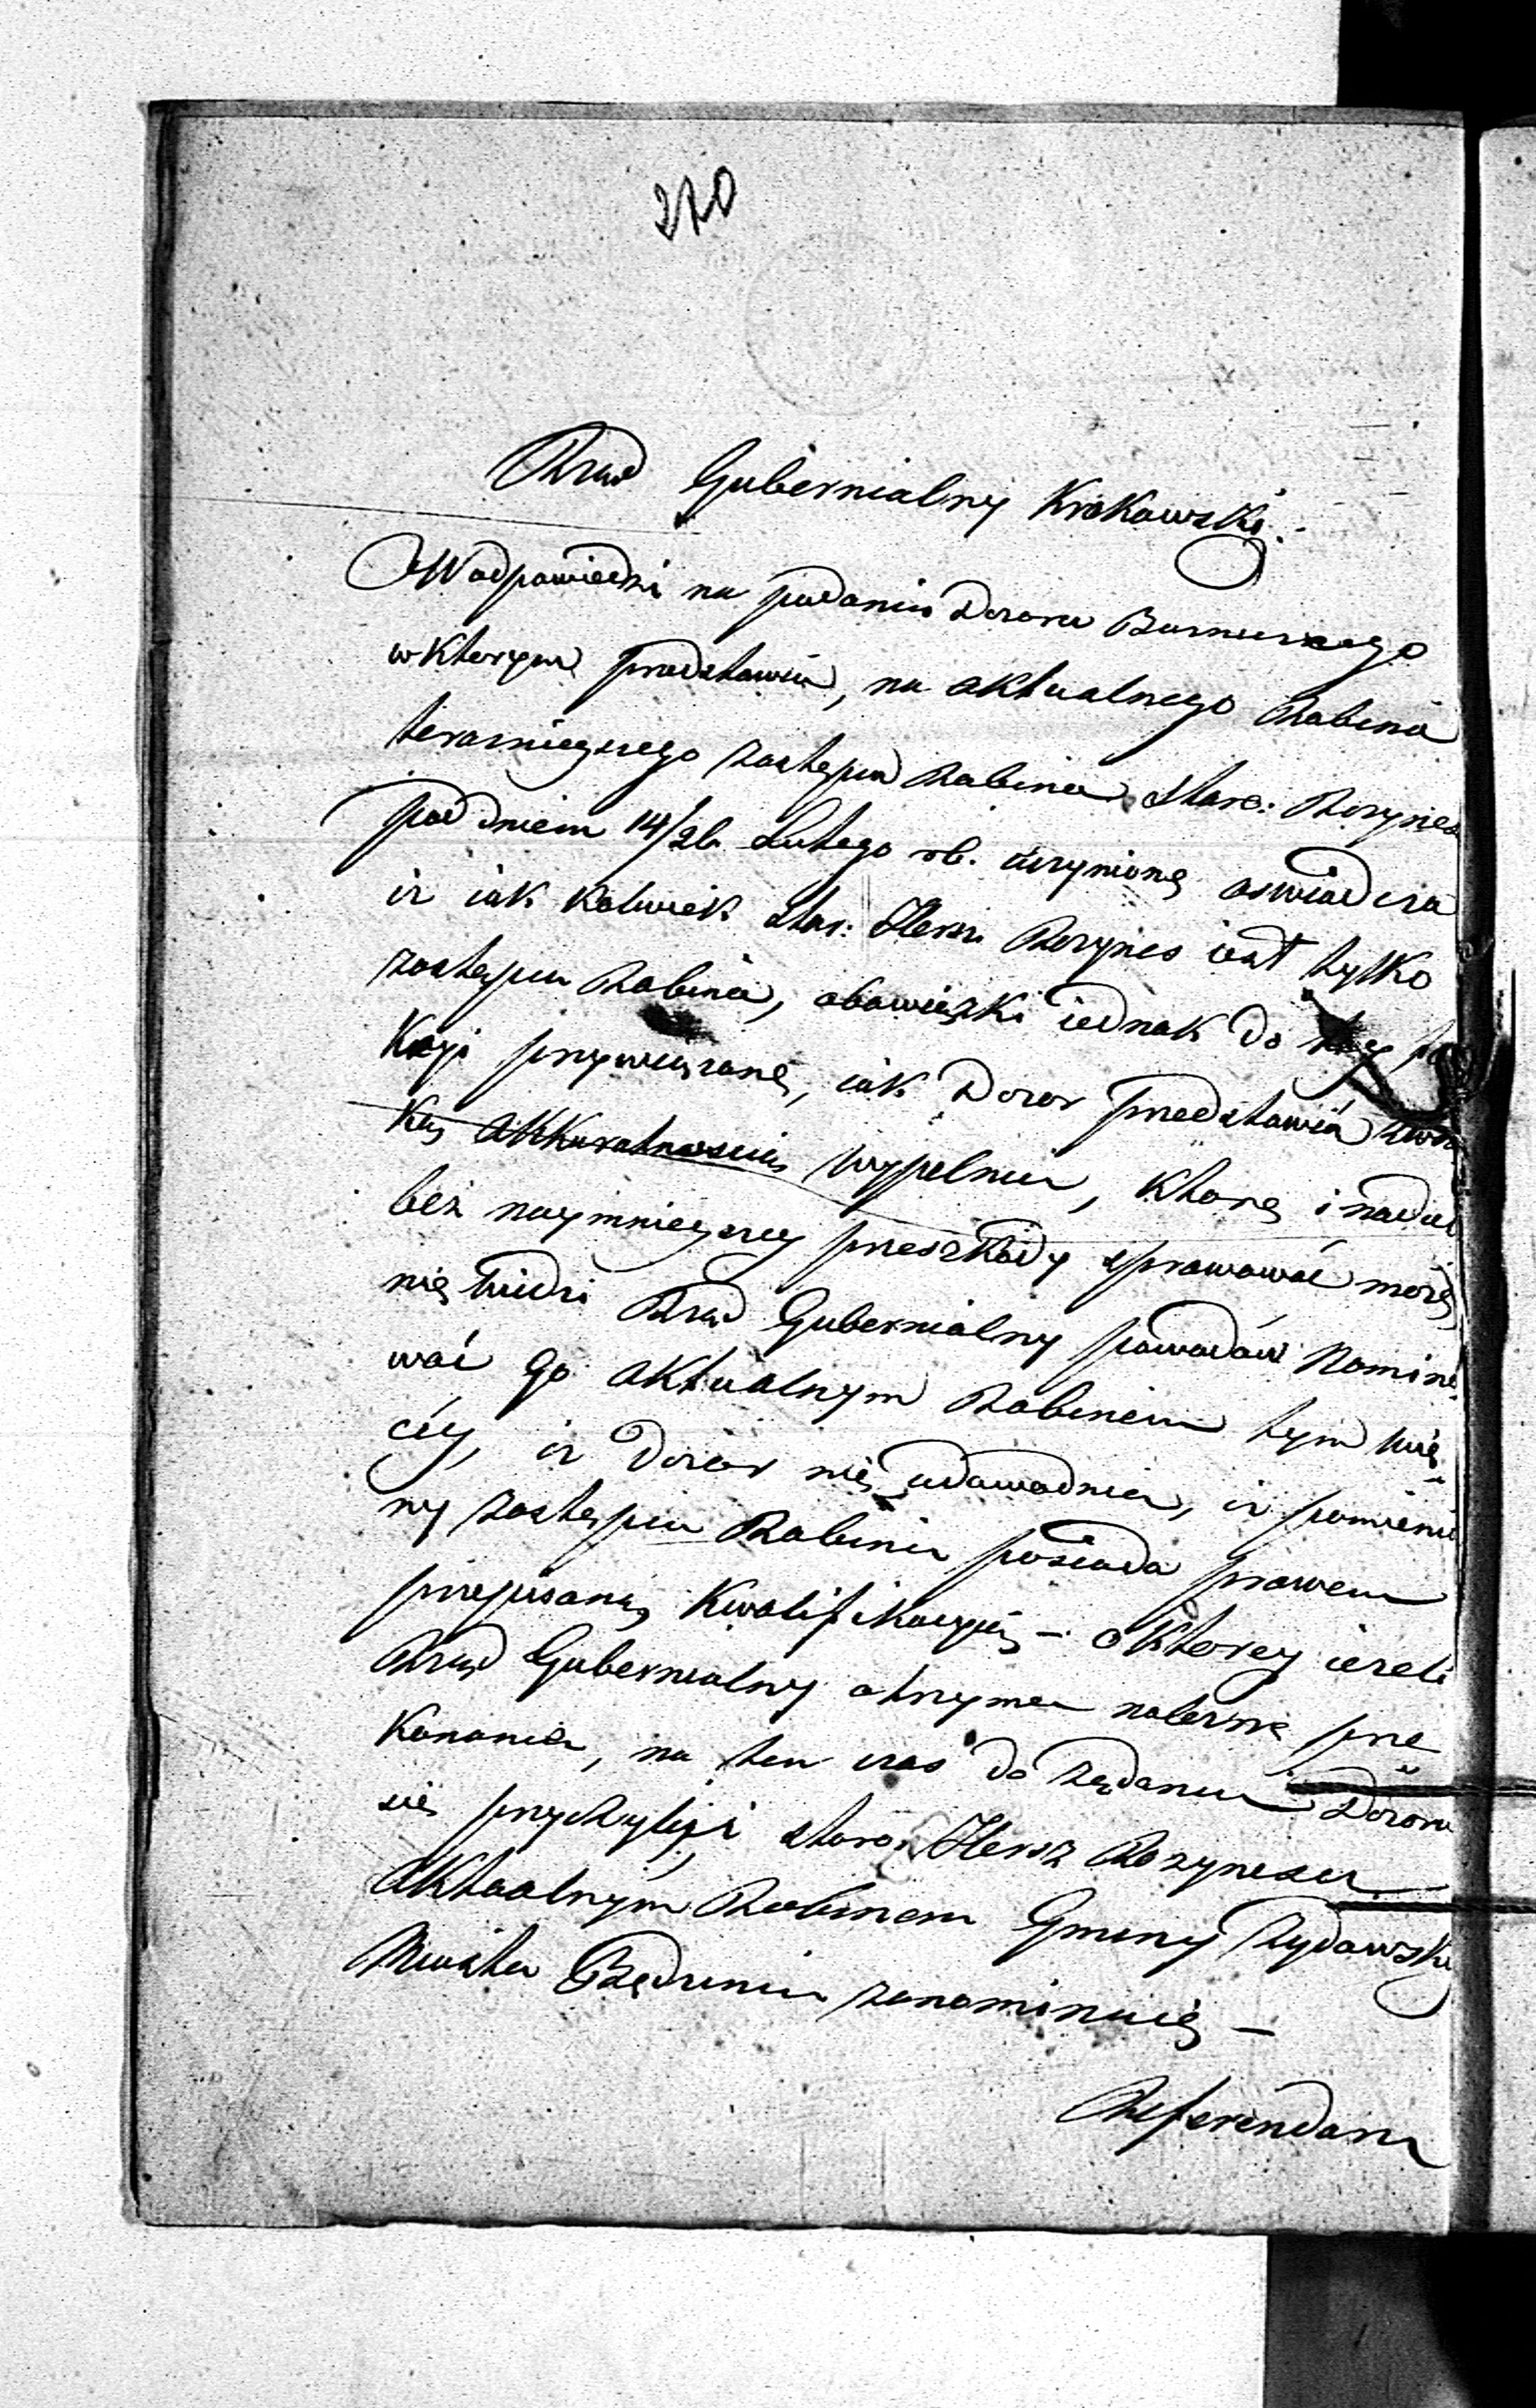 270
Rząd Gubernialny Krakowski.
W odpowiedzi na podanie Dozoru Bużniczego
w którym przedstawia, na aktualnego Rabina
teraznieyszego zastępcę Rabina Staro: Rozynes
pod dniem 14/26 Lutego rb. uczynione oswiadcza
iz iak kolwiek Star: Hersz Rozynes iest tylko
zastępcą Rabina, obowiązki iednak do tey
przywiązane, iak Dozor przedstawia
ką akkuratnoscią wypełnia, które i nadal
bez naymnieyszey przeszkody sprawować może
nie widzi Rząd Gubernialny powodów Nomino
wać go aktualnym Rabinem tym wię
cey, iz Dozór nie udowadnia, iz pomienio
ny zastępca Rabina posiada prawem
przepisaną Kwalifikacyią – o ktorey iezeli
Rząd Gubernialny otrzyma należne prze
konanie, na ten czas do żądania Dozoru
się przychyli, i staro: Hersz Rozynesa
Aktualnym Rabinem Gminy Żydowski
Miasta Będzina zanominuie –
Referendarz